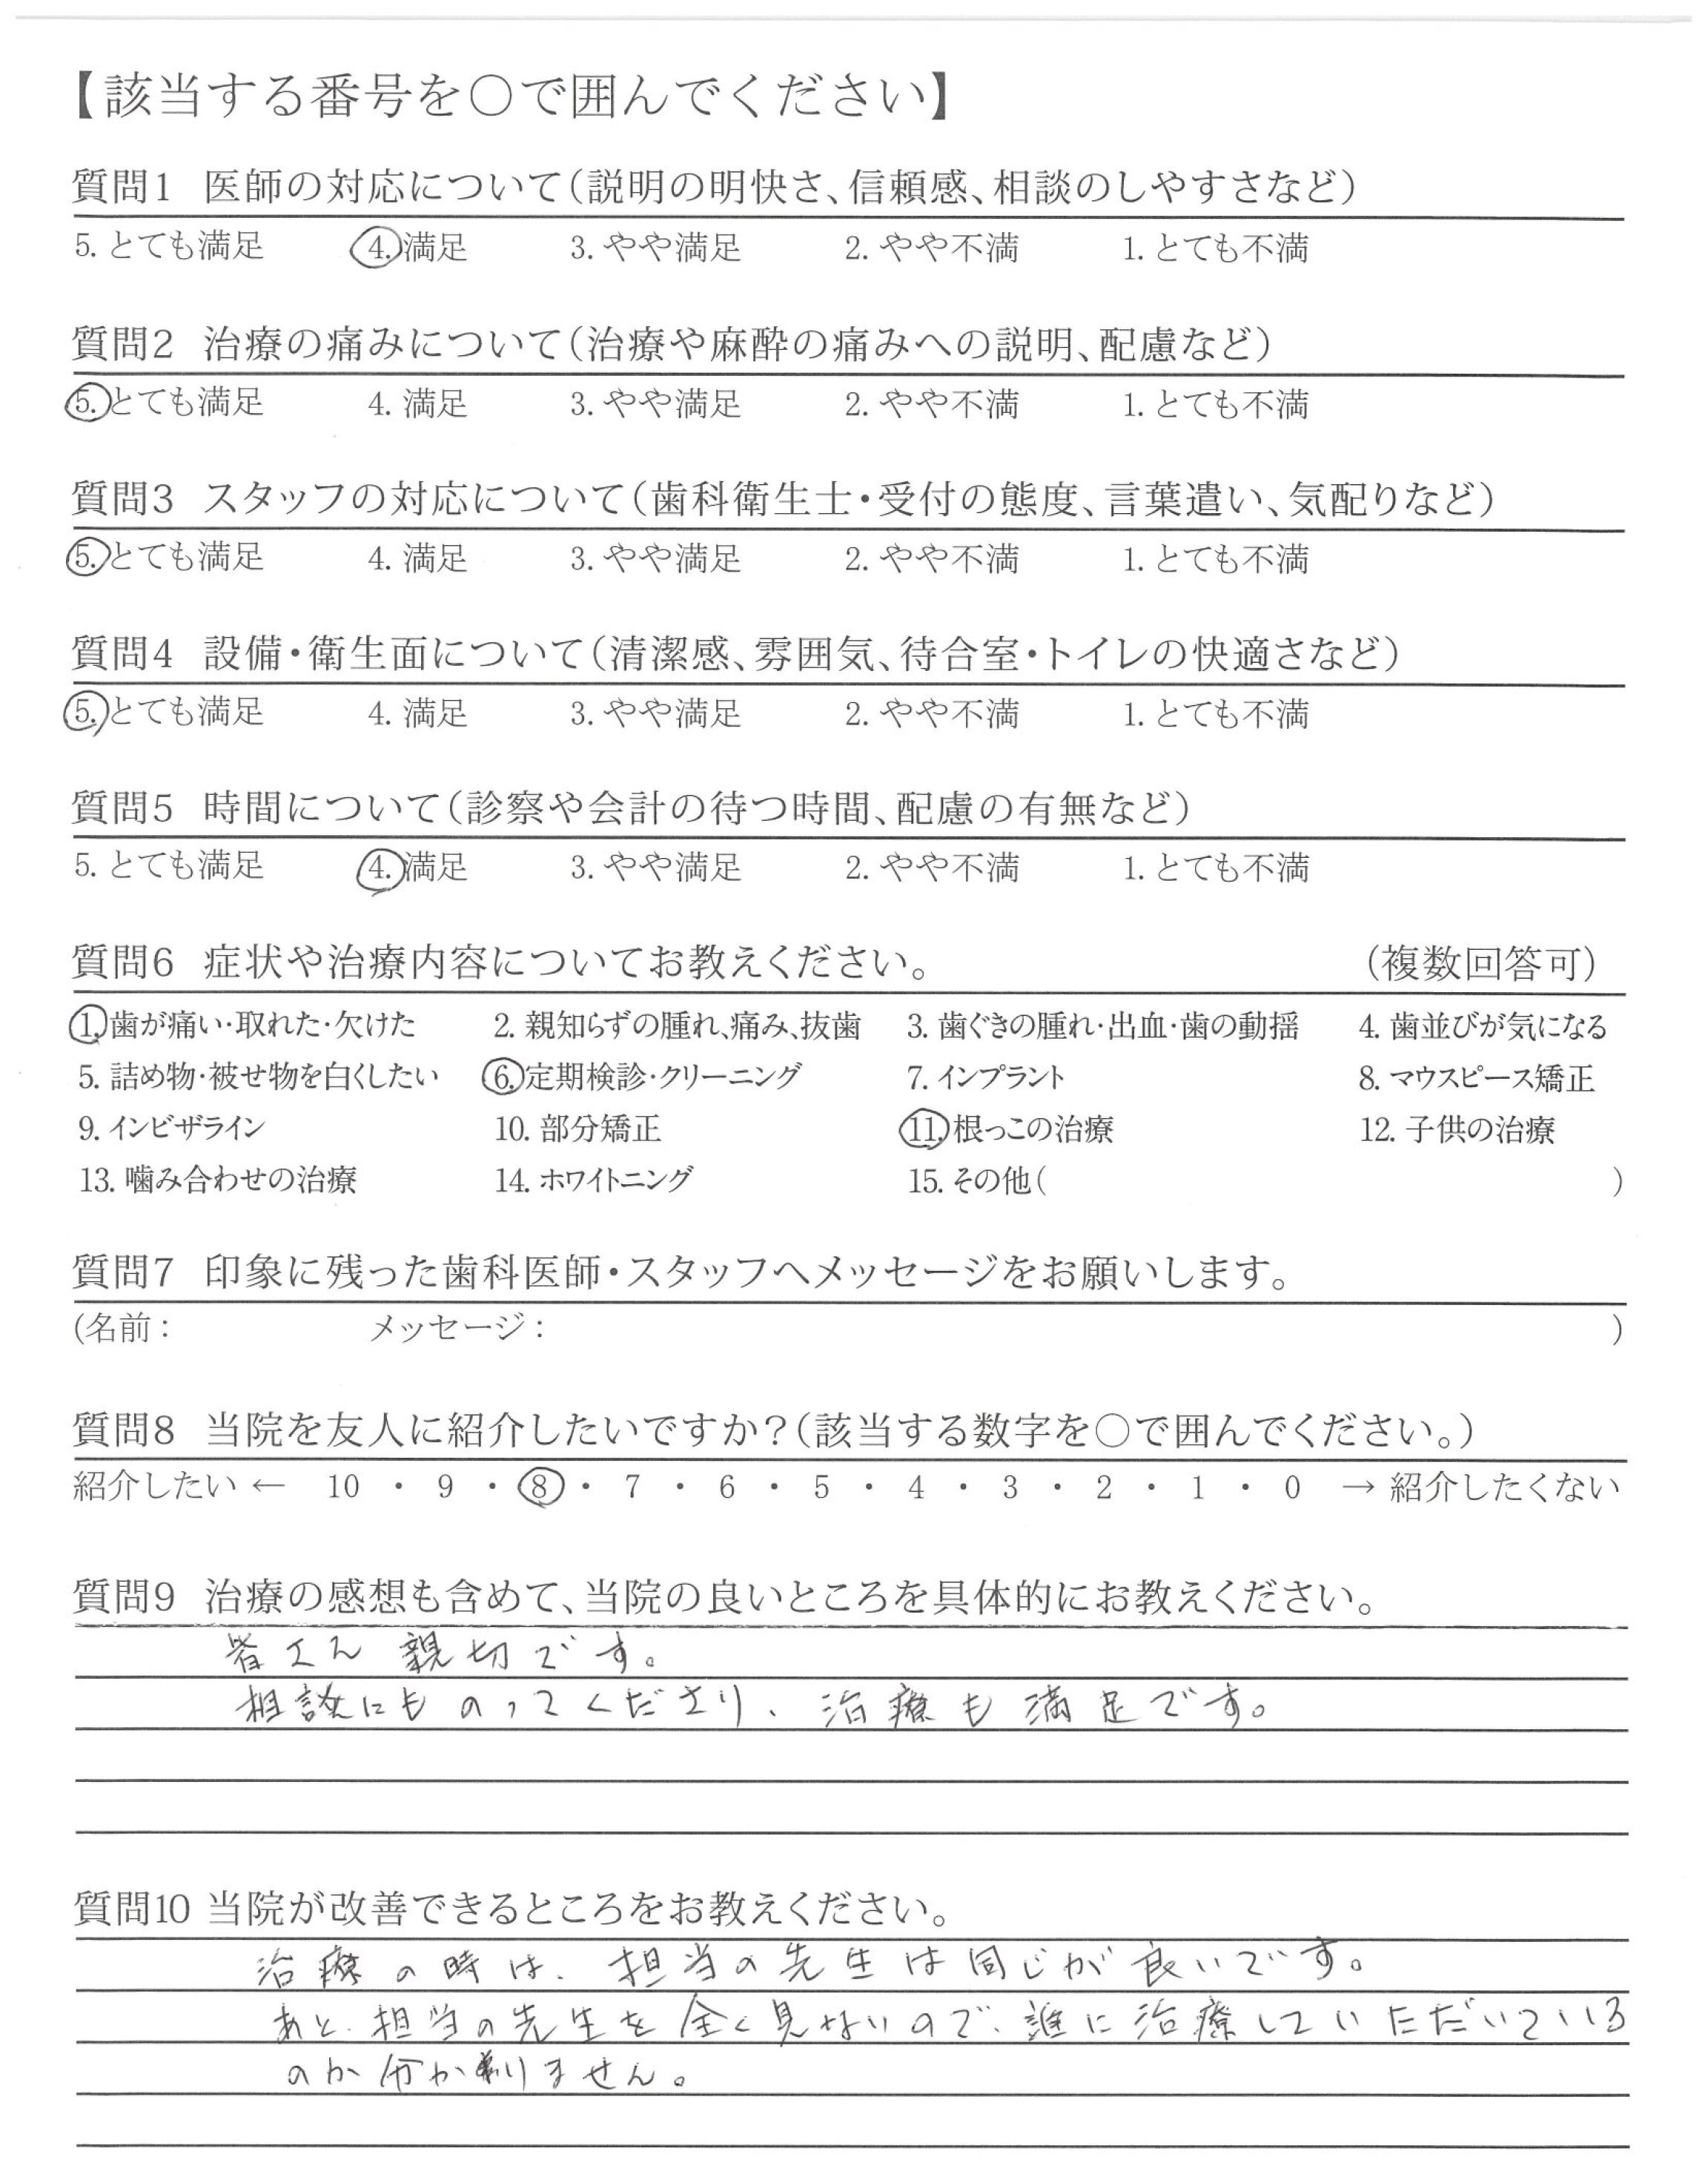 【該当する番号を○で囲んでください】
質問1 医師の対応について（説明の明快さ、信頼感、相談のしやすさなど）
5. とても満足 4. 満足 3. やや満足 2. やや不満 1. とても不満
質問2 治療の痛みについて（治療や麻酔の痛みへの説明、配慮など）
5. とても満足 4. 満足 3. やや満足 2. やや不満 1. とても不満
質問3 スタッフの対応について（歯科衛生士・受付の態度、言葉遣い、気配りなど）
5. とても満足 4. 満足 3. やや満足 2. やや不満 1. とても不満
質問4 設備・衛生面について（清潔感、雰囲気、待合室・トイレの快適さなど）
5. とても満足 4. 満足 3. やや満足 2. やや不満 1. とても不満
質問5 時間について（診察や会計の待つ時間、配慮の有無など）
5. とても満足 4. 満足 3. やや満足 2. やや不満 1. とても不満
質問6 症状や治療内容についてお教えください。 （複数回答可）
1. 歯が痛い・取れた・欠けた 2. 親知らずの腫れ、痛み、抜歯 3. 歯ぐきの腫れ・出血・歯の動揺 4. 歯並びが気になる
5. 詰め物・被せ物を白くしたい 6. 定期検診・クリーニング 7. インプラント 8. マウスピース矯正
9. インビザライン 10. 部分矯正 11. 根っこの治療 12. 子供の治療
13. 噛み合わせの治療 14. ホワイトニング 15. その他（ ）
質問7 印象に残った歯科医師・スタッフへメッセージをお願いします。
（名前： メッセージ： ）
質問8 当院を友人に紹介したいですか？（該当する数字を○で囲んでください。）
紹介したい ← 10 ・ 9 ・ 8 ・ 7 ・ 6 ・ 5 ・ 4 ・ 3 ・ 2 ・ 1 ・ 0 → 紹介したくない
質問9 治療の感想も含めて、当院の良いところを具体的にお教えください。
皆さん 親切です。
相談にものってくださり、治療も満足です。
質問10 当院が改善できるところをお教えください。
治療の時は、担当の先生は同じが良いです。
あと、担当の先生を全く見ないので、誰に治療していただいている
のか分かりません。